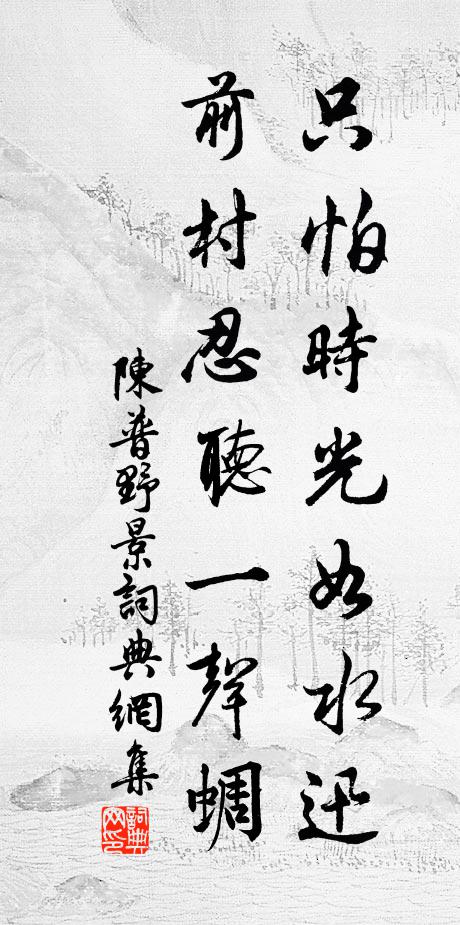 只怕時光如水迅
前村忍聽一聲蜩
陳普野景詞典網集
詞典
網印